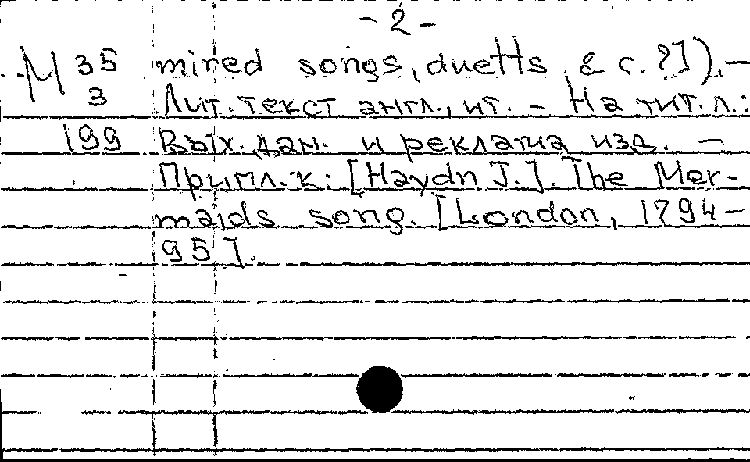 - 2 -
М 35 mired songs, duetts & c. ?]). –
3 Лит. текст англ., ит. – На тит. л.:
199 Вых. дан. и реклама изд. –
Припл. к: [Haydn J.]. The Mer-
maids song. [London, 1794-
95].